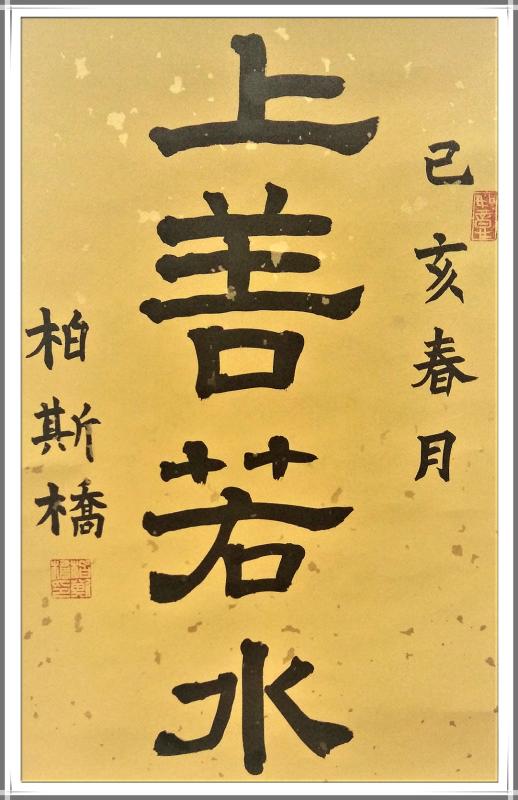 己亥春月
上善若水
柏斯橋